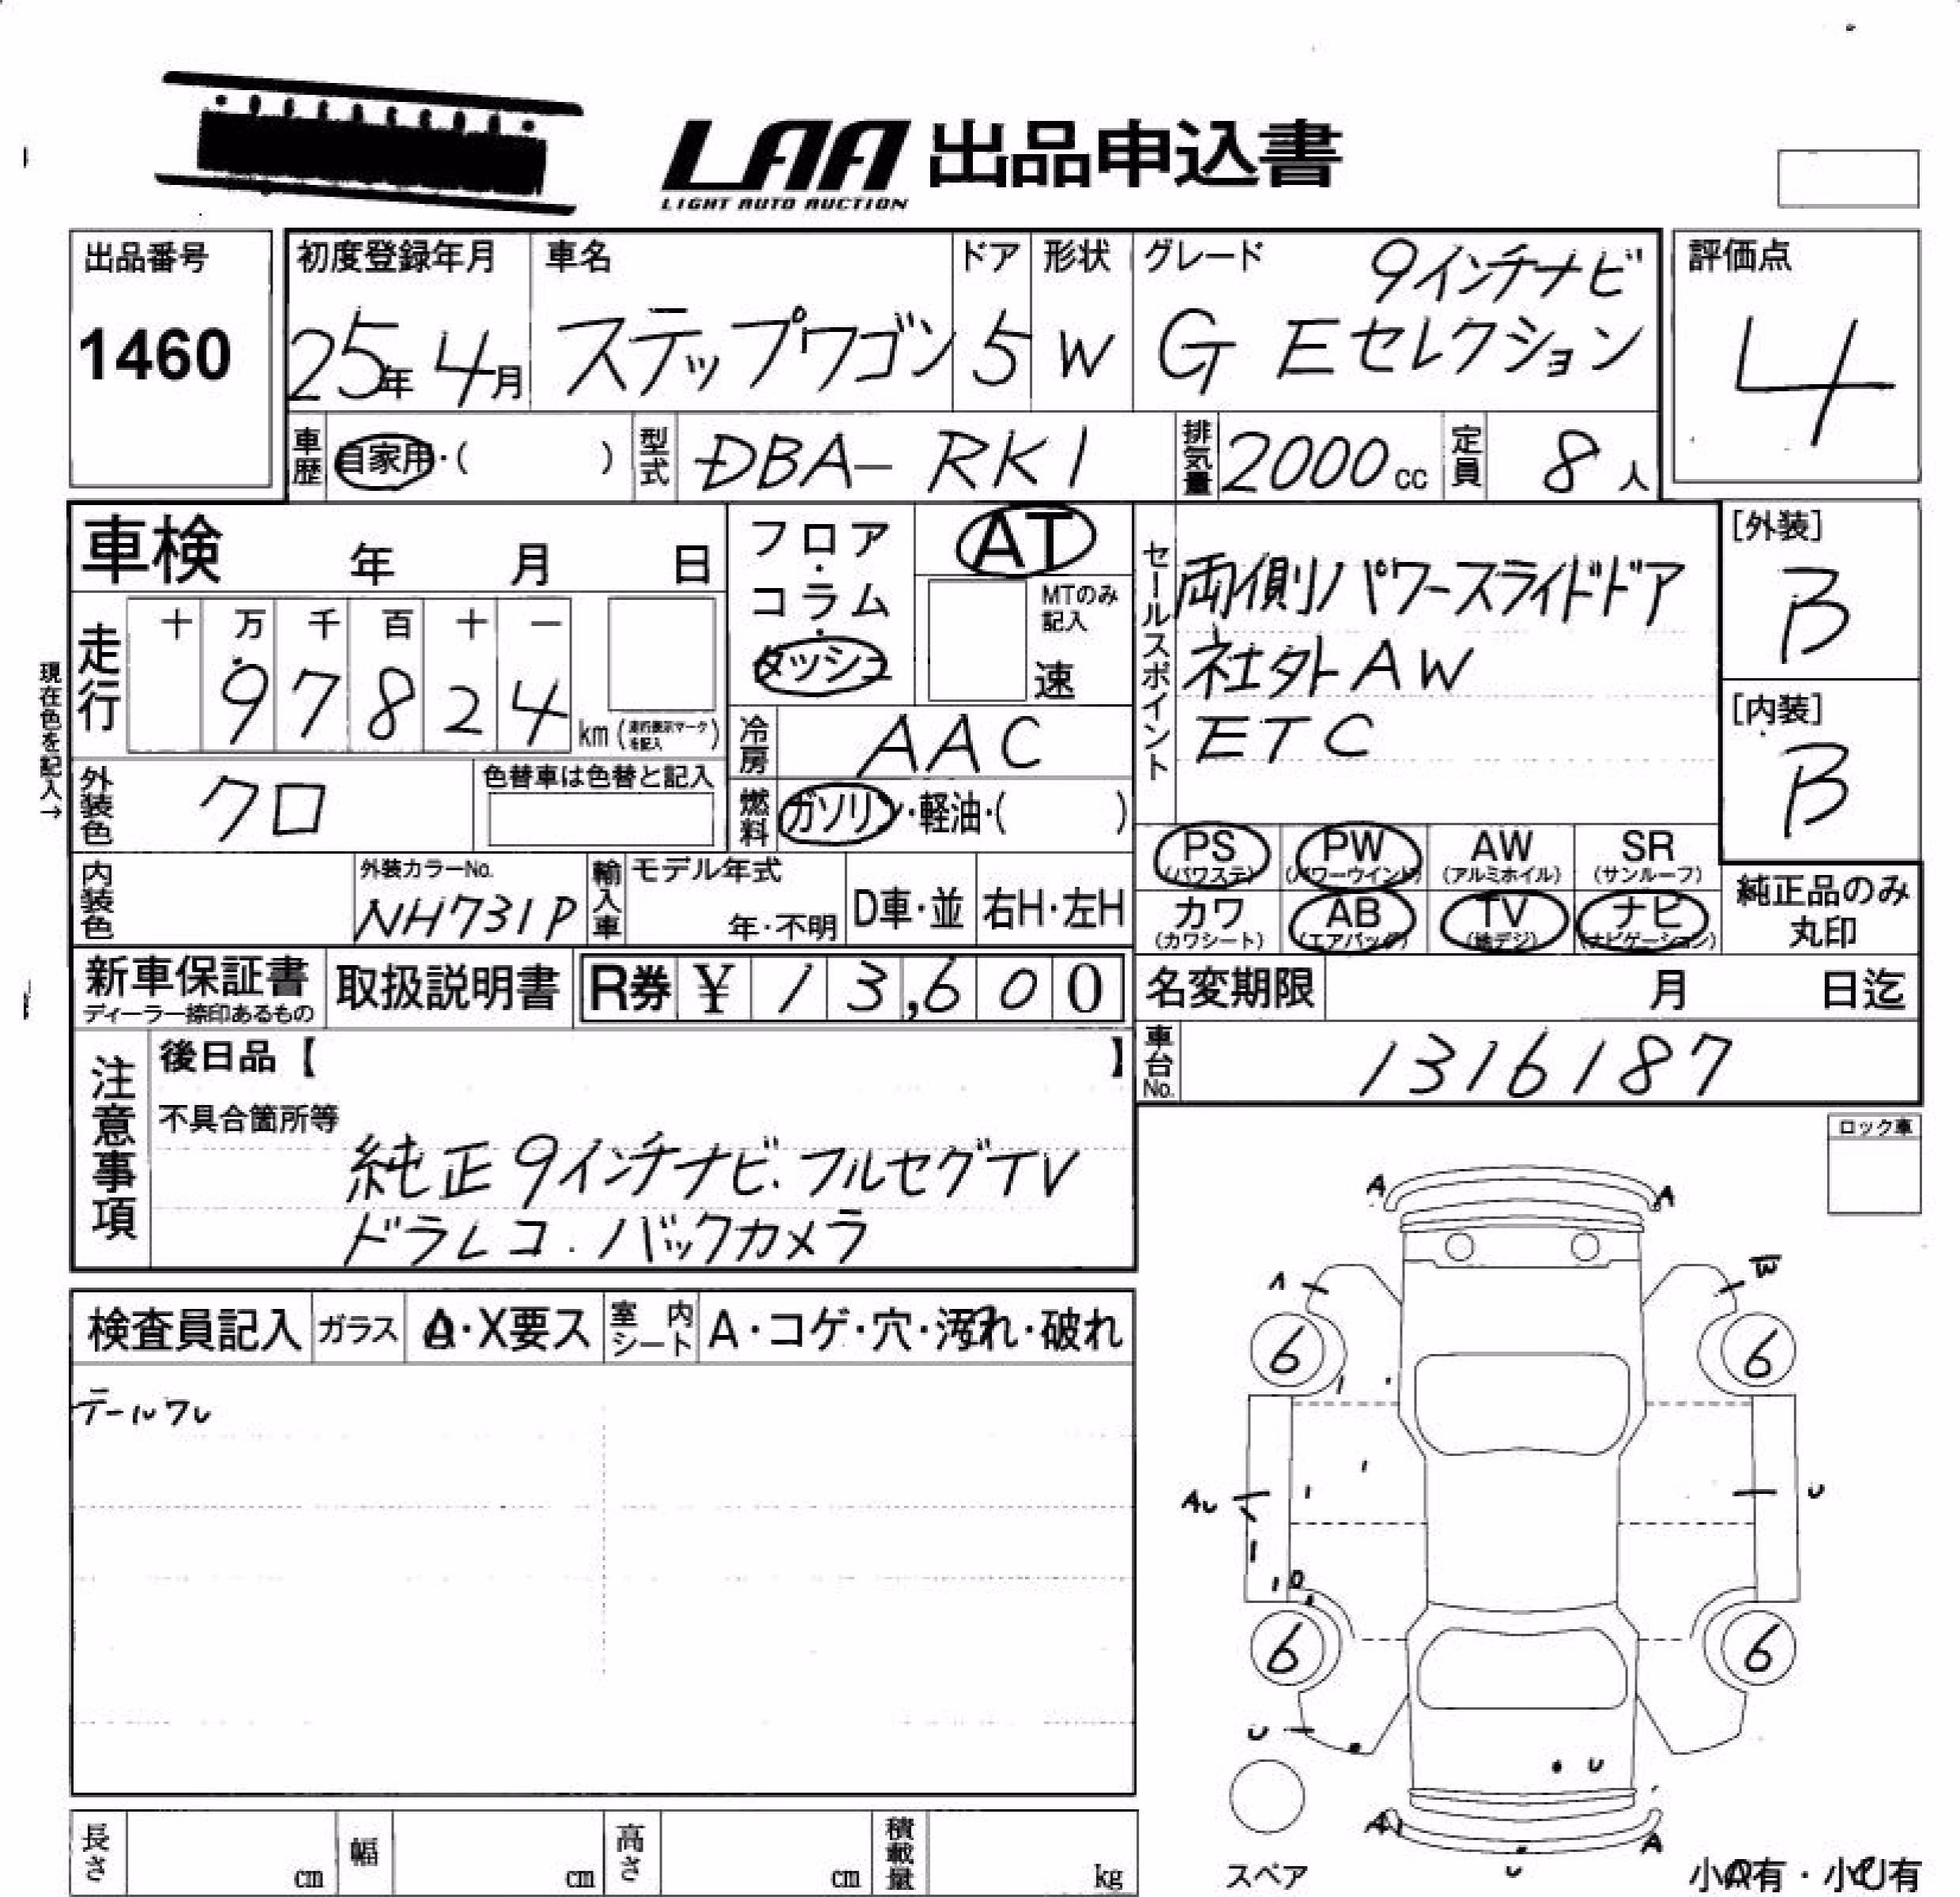 LAA 出品申込書
LIGHT AUTO AUCTION
出品番号
1460
初度登録年月
25年 4月
車名
ステップワゴン
ドア
5
形状
W
グレード
9インチナビ
G Eセレクション
評価点
4
車歴
自家用・( )
型式
DBA-RK1
排気量
2000cc
定員
8人
車検 年 月 日
フロア・コラム・ダッシュ
AT
MTのみ記入
速
セールスポイント
両側パワースライドドア
社外AW
ETC
[外装]
B
[内装]
B
現在色を記入→
走行
十 万 千 百 十 一
9 7 8 2 4 km
冷房
AAC
外装色
クロ
色替車は色替と記入
燃料
ガソリン・軽油・( )
内装色
外装カラーNo.
NH731P
輸入車
モデル年式
年・不明
D車・並
右H・左H
PS (パワステ)
PW (パワーウインド)
AW (アルミホイル)
SR (サンルーフ)
カワ (カワシート)
AB (エアバッグ)
TV (地デジ)
ナビ (ナビゲーション)
純正品のみ
丸印
新車保証書
ディーラー捺印あるもの
取扱説明書
R券 ¥ 13,600
名変期限 月 日迄
車台No.
1316187
注意事項
後日品【 】
不具合箇所等
純正9インチナビ.フルセグTV
ドラレコ.バックカメラ
ロック車
検査員記入
ガラス
A・X要ス
室内シート
A・コゲ・穴・汚れ・破れ
テールワレ
A A
A W
6 6
AU U
6 6
U
U
A A
U
スペア
小A有・小U有
長さ cm
幅 cm
高さ cm
積載量 kg